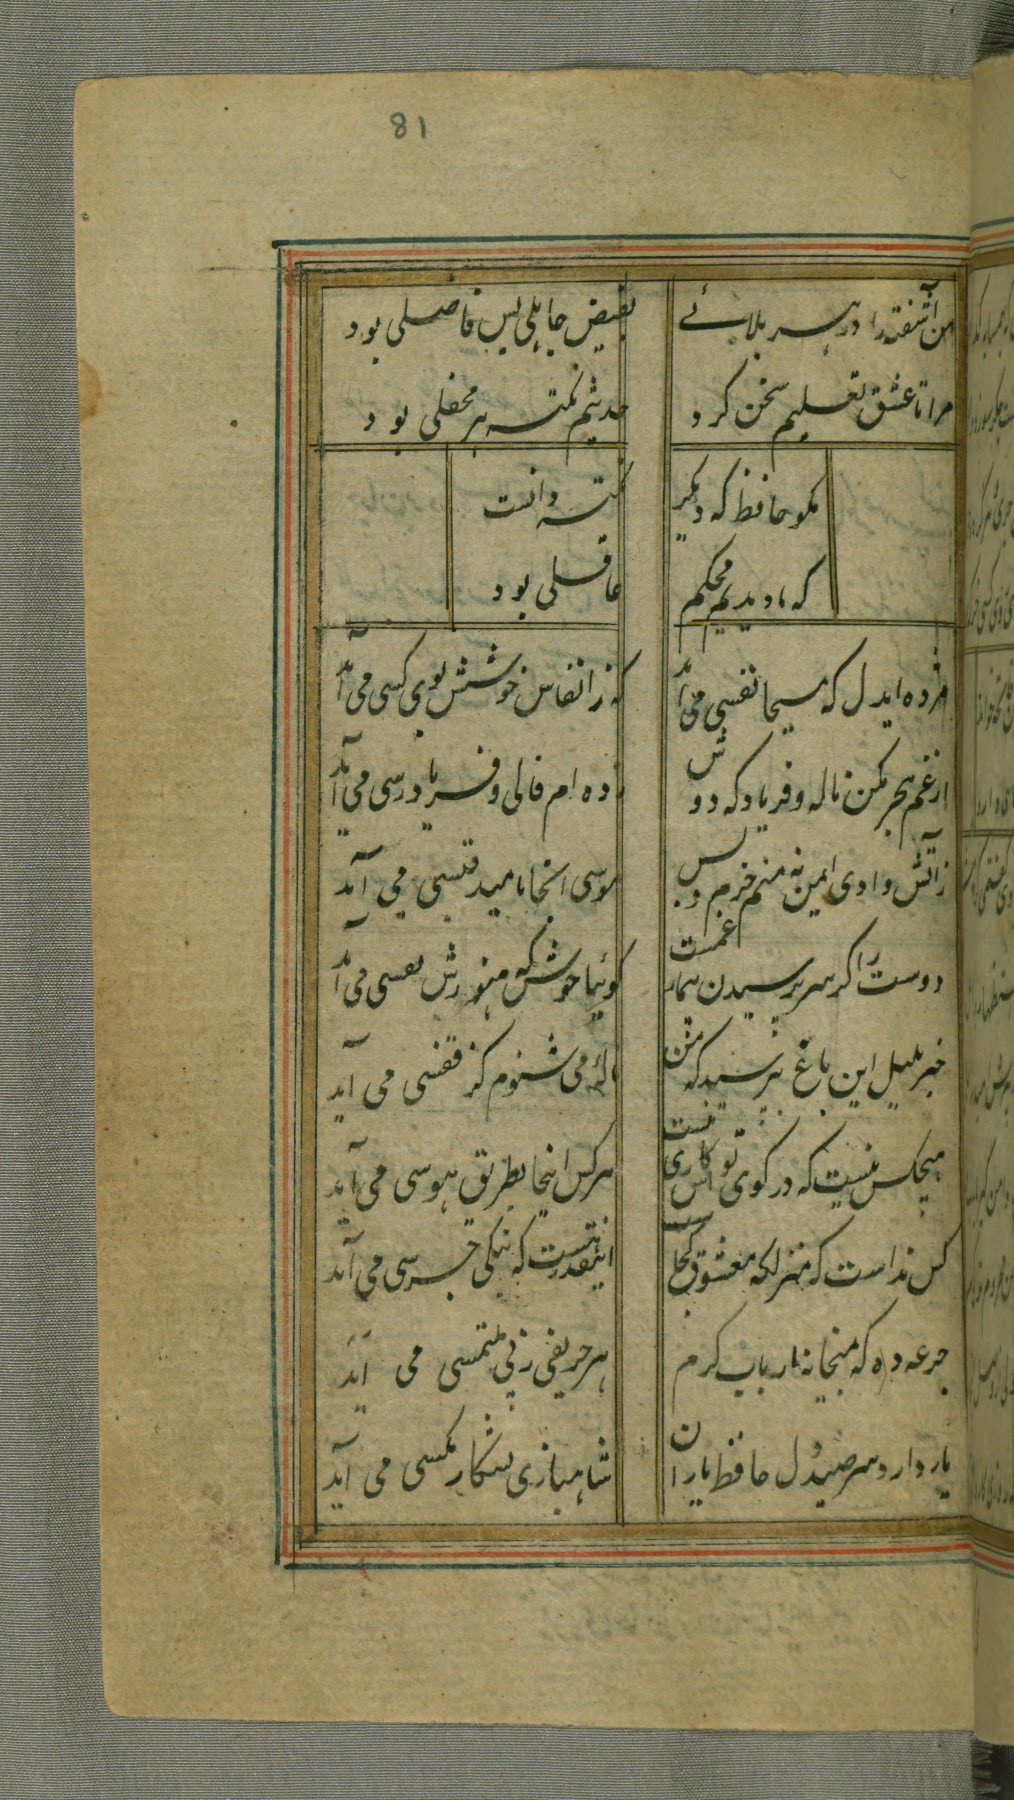 81
من آشفته را در هر بلائے
بفیض جاهلی پس فاضلی بود
مرا تا عشق تعلیم سخن کرد
حدیثم نکته هر محفلی بود
مکو حافظ که دیگر
نکته دانست
که ما دیدیم محکم
غافلی بود
مژده ایدل که مسیحا نفسی می آید
که ز انفاس خوشش بوی کسی می آید
از غم هجر مکن ناله و فریاد که دوش
زده ام فالی و فریادرسی می آید
ز آتش وادی ایمن نه منم خرم و بس
موسی انجا بامید قبسی می آید
دوست را کر سر پرسیدن بیمار غمست
کو بیا خوش که هنوزش نفسی می آید
خبر بلبل این باغ بپرسید که من
ناله می شنوم کز قفسی می آید
هیچکس نیست که در کوی تو اش کاری نیست
هر کس اینجا بطریق هوسی می آید
کس ندانست که منزلکه معشوق کجاست
اینقدر هست که بانک جرسی می آید
جرعه ده که بمیخانه ارباب کرم
هر حریفی ز پی ملتمسی می آید
یار دارد سر صید دل حافظ یاران
شاهبازی بشکار مکسی می آید